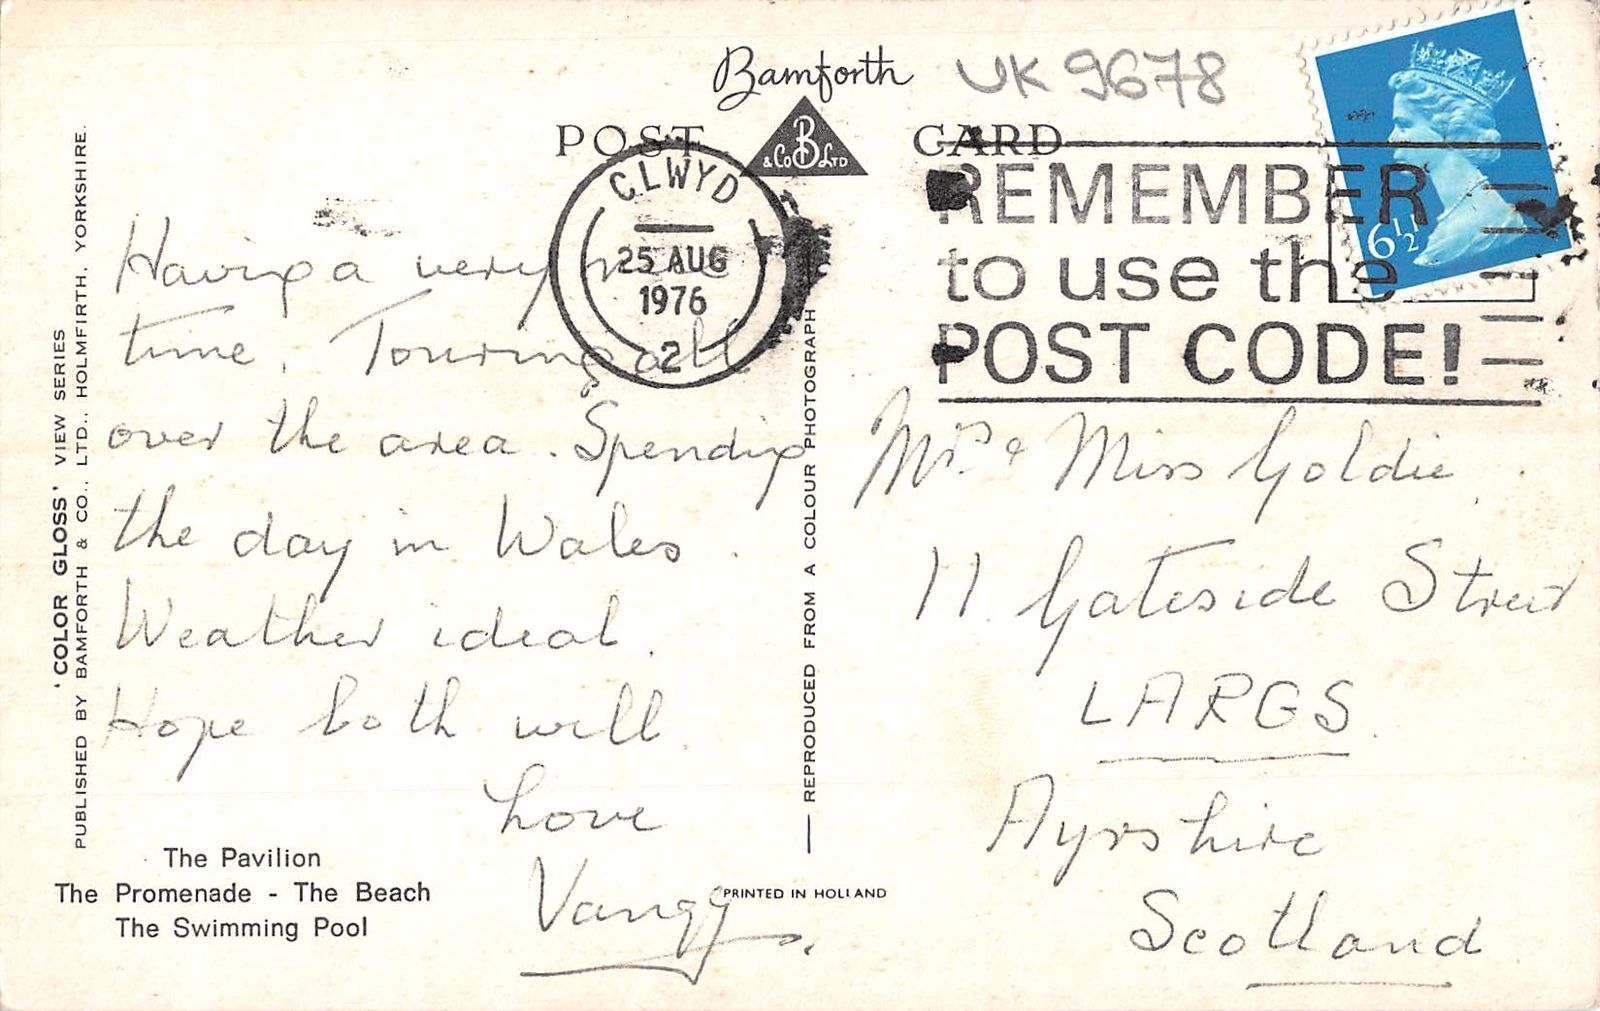 Bamforth
UK 9678
POST CARD
B
& Co Ltd
CLWYD
25 AUG
1976
2
REMEMBER
to use the
POST CODE!
6½
'COLOR GLOSS' VIEW SERIES
PUBLISHED BY BAMFORTH & CO., LTD., HOLMFIRTH, YORKSHIRE.
Having a very
time. Touring all
over the area. Spending
the day in Wales.
Weather ideal.
Hope both well.
Love
The Pavilion
The Promenade - The Beach
The Swimming Pool
REPRODUCED FROM A COLOUR PHOTOGRAPH
PRINTED IN HOLLAND
Mrs & Miss Goldie
11 Gateside Street
LARGS
Ayrshire
Scotland